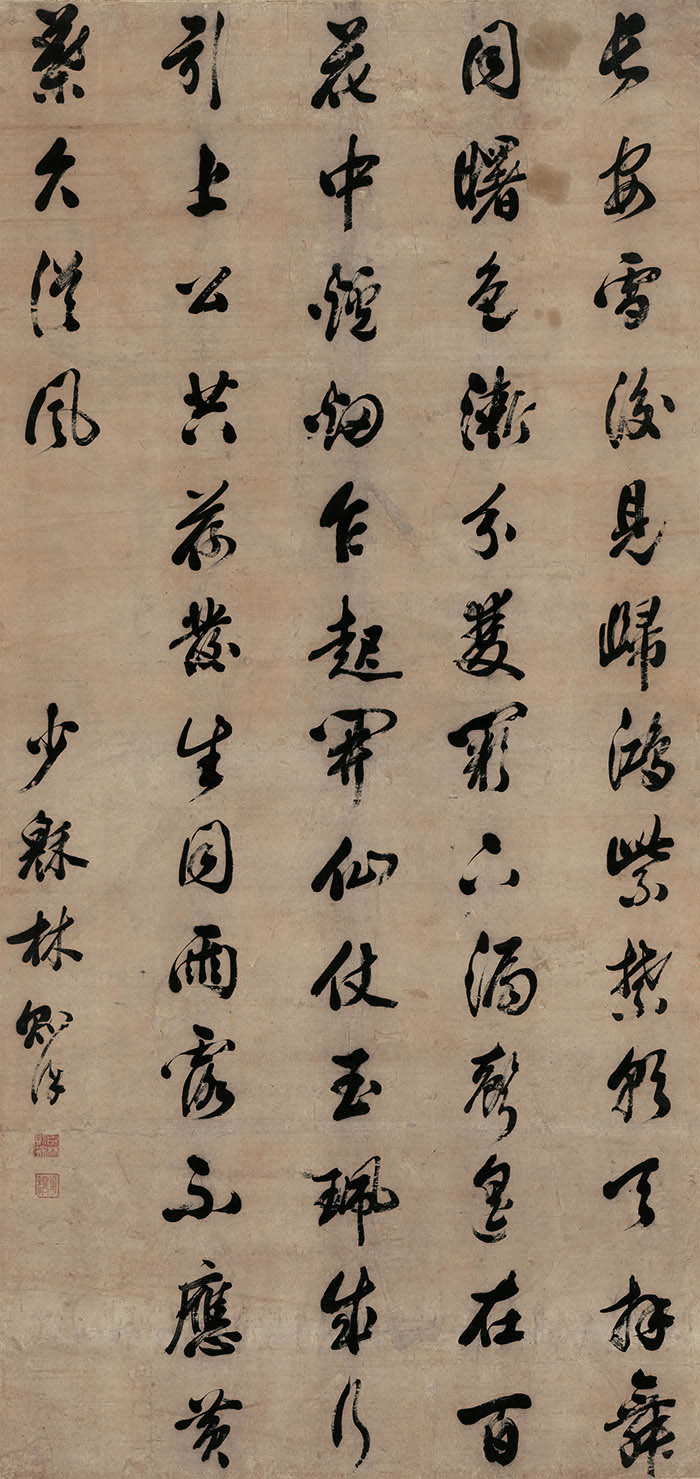 長安雪後見歸鴻紫禁朝天拜舞
同曙色漸分雙闕下漏聲遥在百
花中爐烟乍起開仙仗玉珮成行
引上公共荷發生同雨露不應黄
葉久從風
少穌林則徐